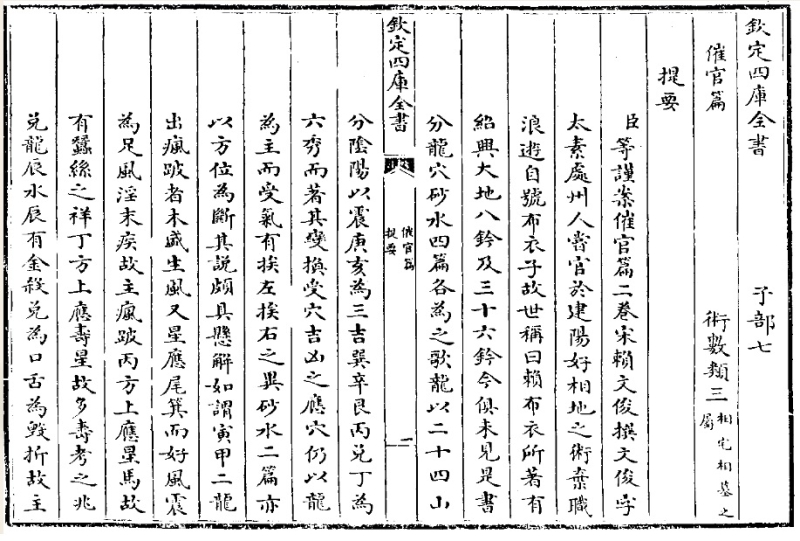 欽定四庫全書
子部七
催官篇
術數類三相宅相墓之屬
提要
臣等謹案催官篇二卷宋賴文俊撰文俊字
太素處州人嘗官於建陽好相地之術棄職
浪遊自號布衣子故世稱曰賴布衣所著有
紹興大地八鈐及三十六鈐今俱未見是書
分龍穴砂水四篇各為之歌龍以二十四山
欽定四庫全書
催官篇
提要
一
分陰陽以震庚亥為三吉巽辛艮丙兌丁為
六秀而著其變換受穴吉凶之應穴仍以龍
為主而受氣有挨左挨右之異砂水二篇亦
以方位為斷其說頗具懸解如謂寅甲二龍
出瘋跛者木盛生風又星應尾箕而好風震
為足風淫末疾故主瘋跛丙方上應星馬故
有蠶絲之祥丁方上應壽星故多壽考之兆
兌龍辰水辰有金殺兌為口舌為毀折故主